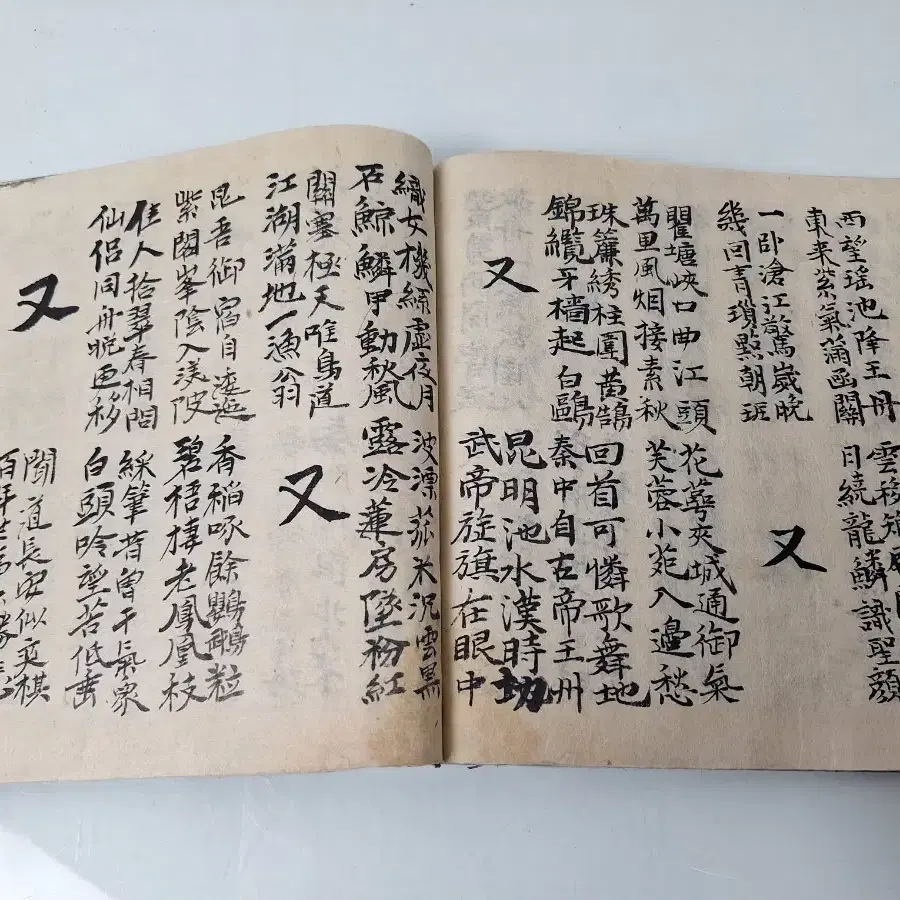 西望瑶池降王母
東来紫氣滿函關
雲移雉尾
日繞龍鱗識聖顔
一卧滄江驚歲晚
幾回青瑣點朝班
又
瞿塘峽口曲江頭
萬里風烟接素秋
花萼夾城通御氣
芙蓉小苑入邊愁
珠簾綉柱圍黄鵠
錦纜牙檣起白鷗
回首可憐歌舞地
秦中自古帝王州
又
昆明池水漢時功
武帝旌旗在眼中
織女機絲虛夜月
石鯨鱗甲動秋風
波漂菰米沉雲黑
露冷蓮房墜粉紅
關塞極天唯鳥道
江湖滿地一漁翁
又
昆吾御宿自逶迤
紫閣峯陰入渼陂
香稻啄餘鸚鵡粒
碧梧棲老鳳凰枝
佳人拾翠春相問
仙侶同舟晚更移
綵筆昔曾干氣象
白頭吟望苦低垂
又
聞道長安似奕棋
百年世